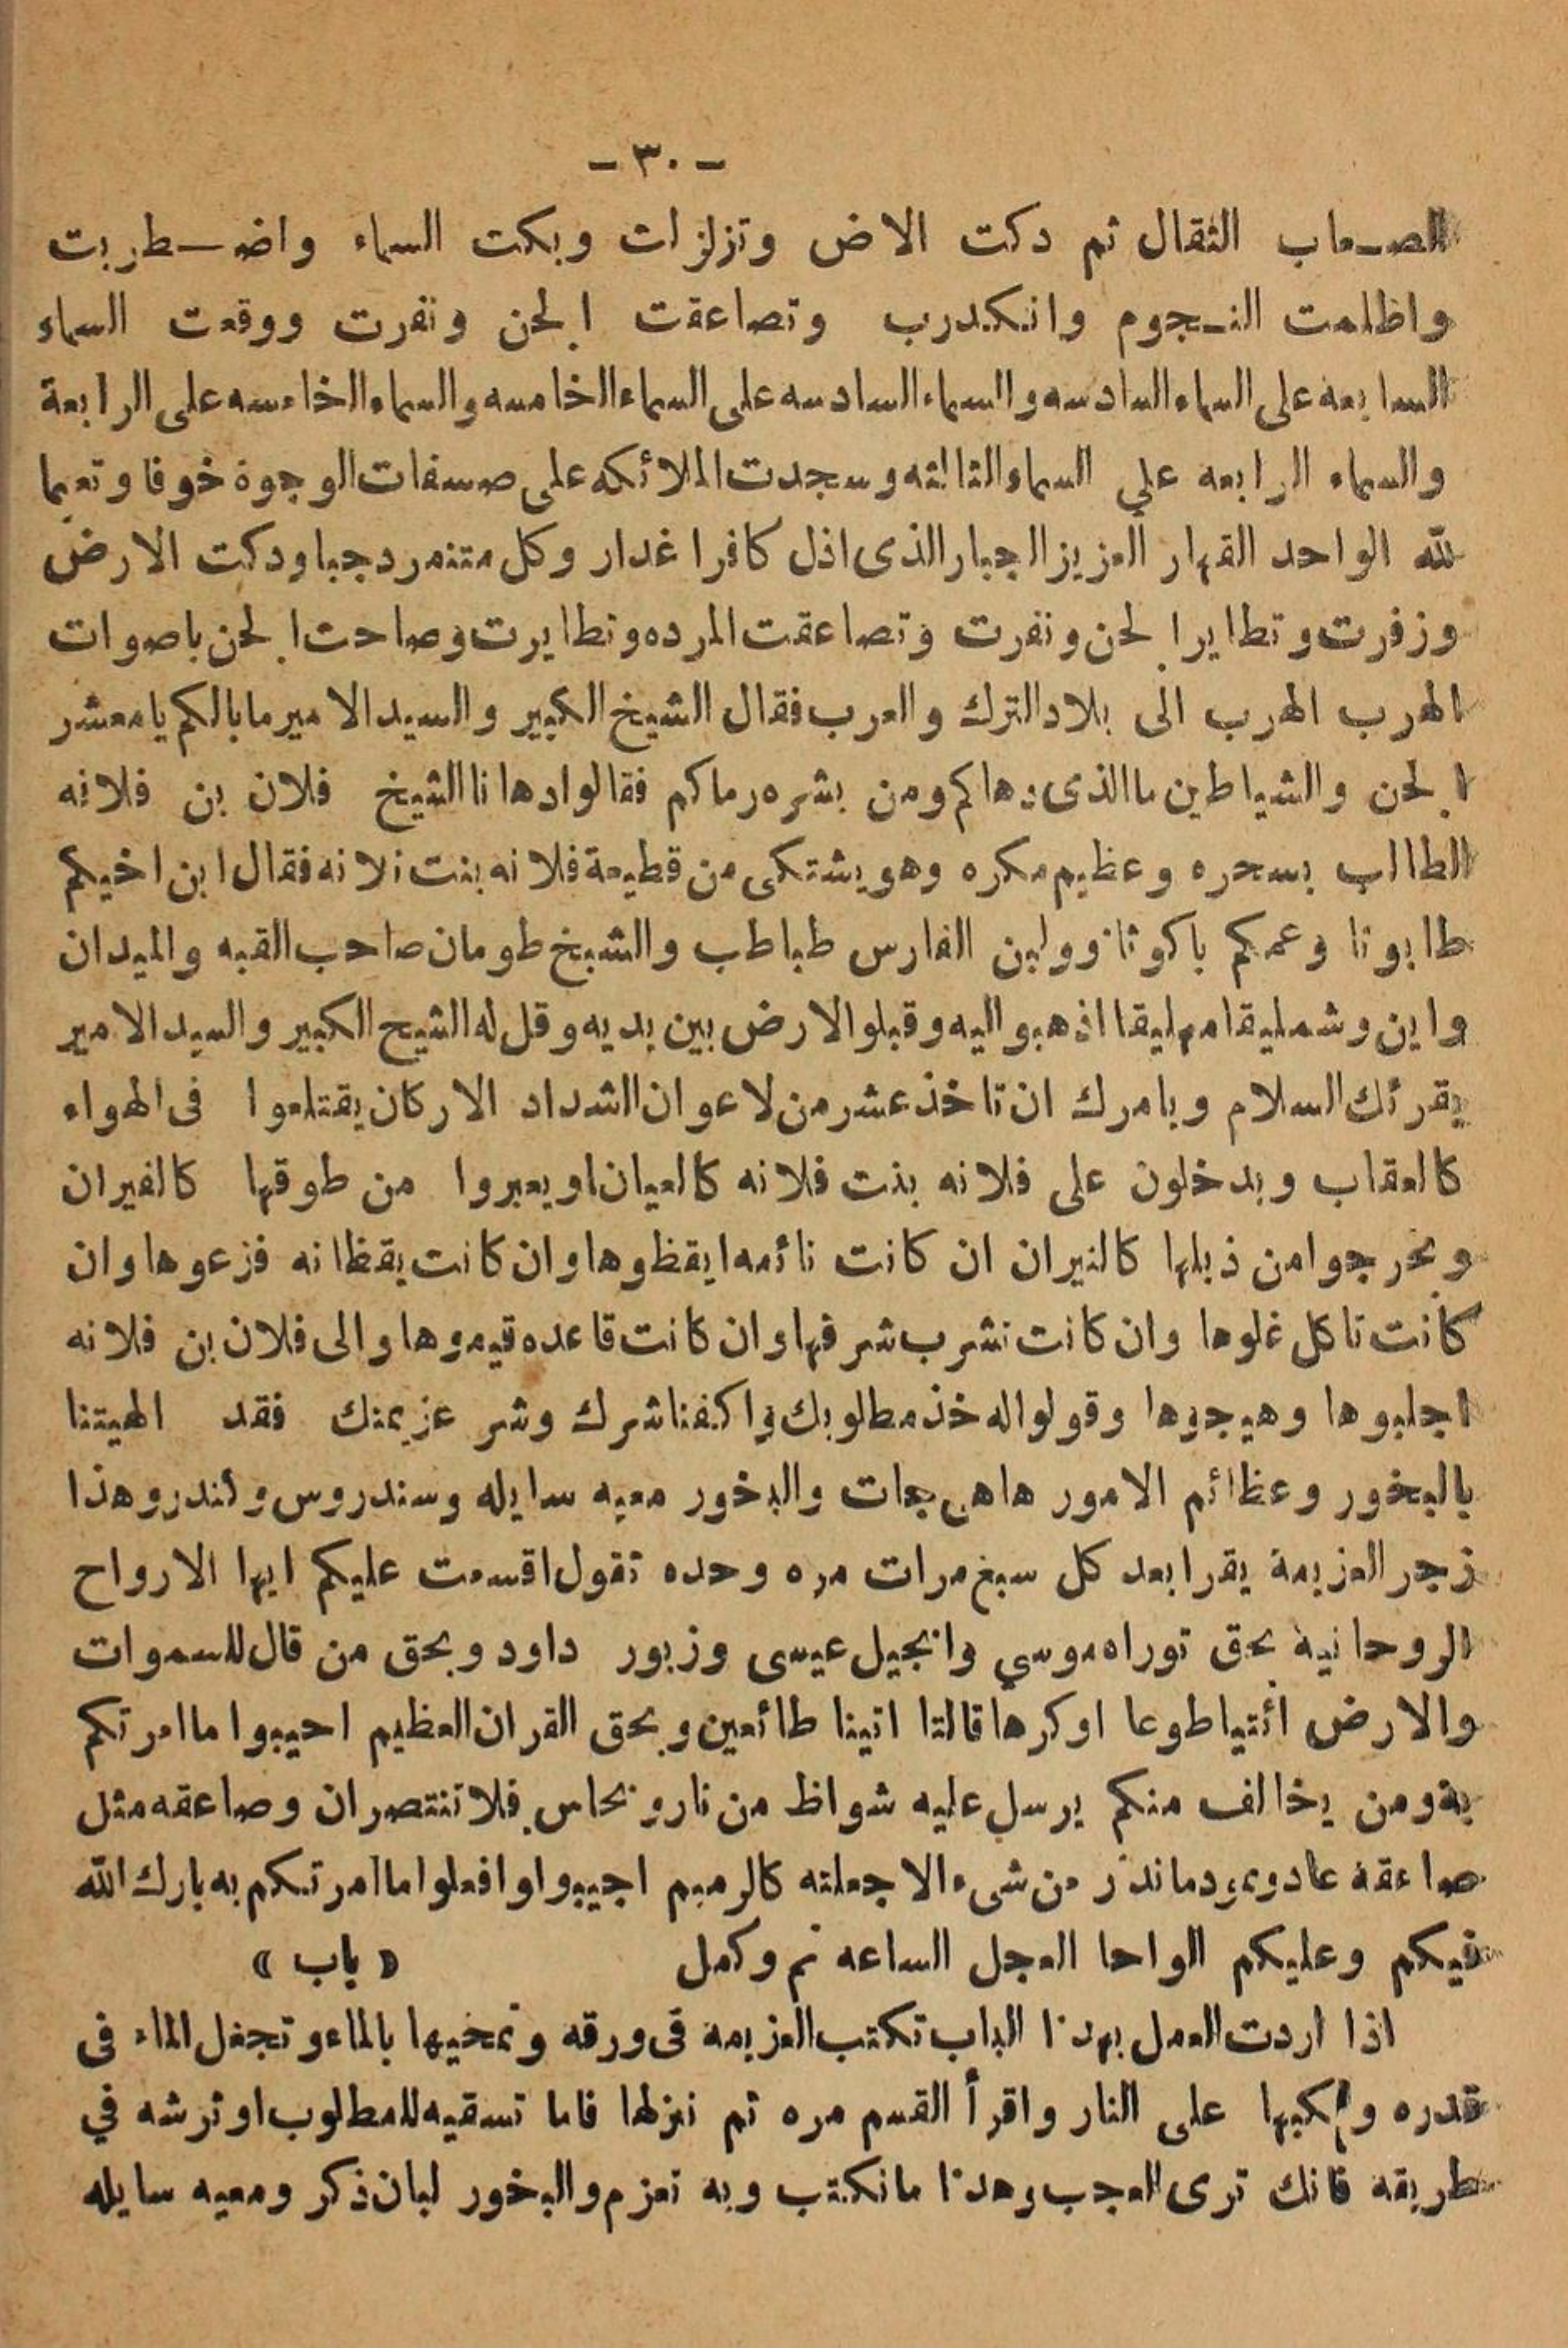 - ٣٠ -
الصعاب الثقال ثم دكت الاض وتزلزات وبكت السماء واضطربت
واظلمت النجوم وانكدرب وتصاعقت الجن ونفرت ووقعت السماء
السابعه على السماء السادسه والسماء السادسه على السماء الخامسه والسماء الخامسه على الرابعة
والسماء الرابعه علي السماء الثالثه وسجدت الملائكه على صسفات الوجوة خوفا وتعيما
لله الواحد القهار العزيز الجبار الذى اذل كافرا غدار وكل متنمرد جبا ودكت الارض
وزفرت وتطاير الجن ونفرت وتصاعقت المرده وتطايرت وصاحت الجن باصوات
الهرب الهرب الى بلاد الترك والعرب فقال الشيخ الكبير والسيد الامير مابالكم يامعشر
الجن والشياطين ماالذى دهاكم ومن بشره رماكم فقالوا دهانا الشيخ فلان بن فلانه
الطالب بسحره وعظيم مكره وهو يشتكى من قطيعة فلانه بنت فلانه فقال ابن اخيكم
طابوثا وعمكم باكوثا وولين الفارس طباطب والشيخ طومان صاحب القبه والميدان
واين وشمليقا مهليقا اذهبو اليه وقبلو الارض بين يديه وقل له الشيح الكبير والسيد الامير
يقرئك السلام ويامرك ان تاخذ عشر من لاعوان الشداد الاركان يقتلعوا فى الهواء
كالعقاب ويدخلون على فلانه بنت فلانه كالعيان او يعبروا من طوقها كالفيران
ويخرجوا من ذيلها كالنيران ان كانت نائمه ايقظوها وان كانت يقظانه فزعوها وان
كانت تاكل غلوها وان كانت تشرب شرفها وان كانت قاعده قيموها والى فلان بن فلانه
اجلبوها وهيجوها وقولوا له خذ مطلوبك واكفنا شرك وشر عزيمتك فقد الهيتنا
بالبخور وعظائم الامور هاهى جات والبخور معيه سايله وسندروس وكندر وهذا
زجر العزيمة يقرا بعد كل سبع مرات مره وحده تقول اقسمت عليكم ايها الارواح
الروحانية بحق توراه موسي وانجيل عيسى وزبور داود وبحق من قال للسموات
والارض ائتيا طوعا اوكرها قالتا اتينا طائعين وبحق القران العظيم احيبوا ما امرتكم
بة ومن يخالف منكم يرسل عليه شواظ من نار ونحاس فلا تنتصران وصاعقه مثل
صاعقة عاد وثمود ماتذر من شىء الا جعلته كالرميم اجيبوا وافعلوا ما امرتكم به بارك الله
فيكم وعليكم الواحا العجل الساعه تم وكمل « باب »
اذا اردت العمل بهذا الباب تكتب العزيمة فى ورقه وتمخيها بالماء وتجعل الماء فى
قدره واركبها على النار واقرأ القسم مره ثم نيزلها فاما تسقيه للمطلوب او ترشه في
طريقه فانك ترى العجب وهذا ماتكتب وبه تعزم والبخور لبان ذكر ومعيه سايله